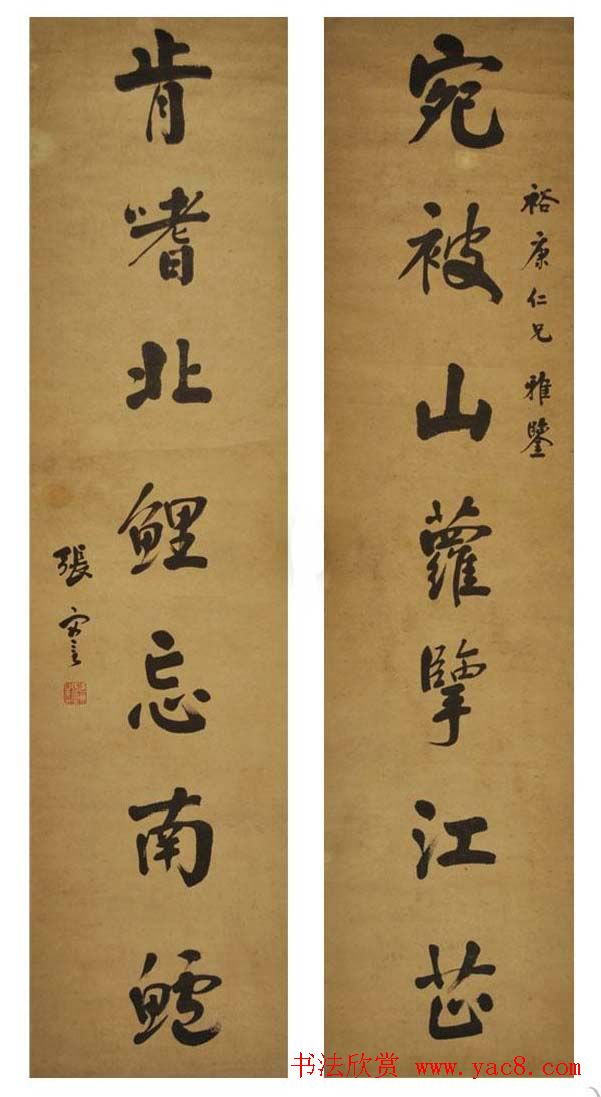 裕康仁兄 雅鑒
宛被山蘿擥江芷
肯嗜北鯉忘南鱸
張謇
书法欣赏 www.yac8.com